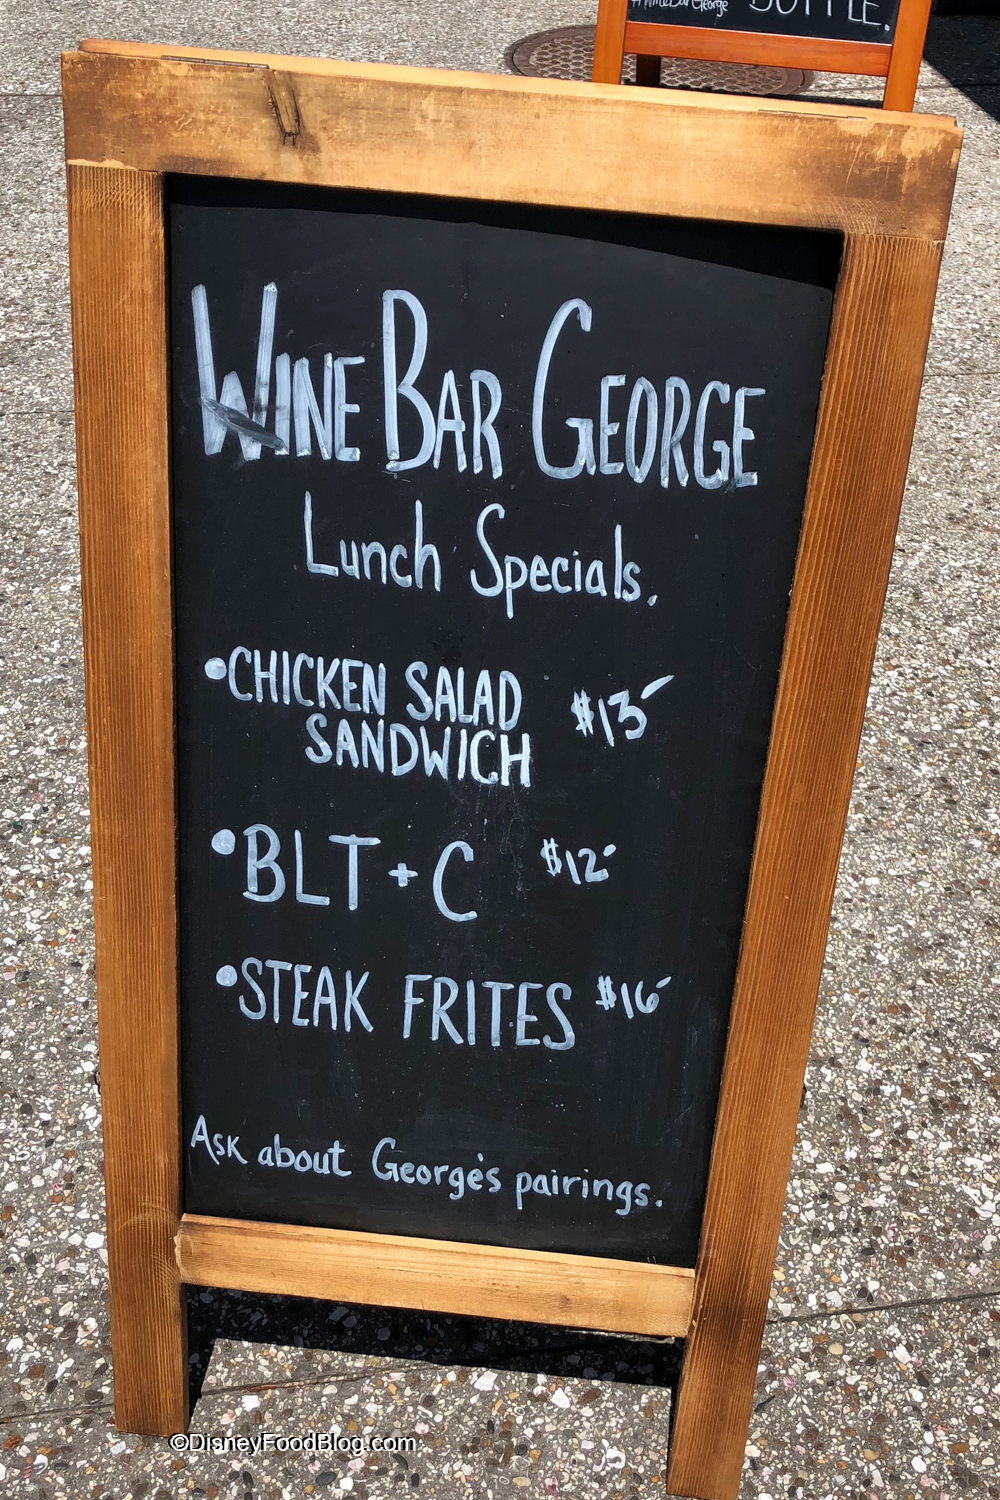 #WineBarGeorge BOTTLE.
WINE BAR GEORGE
Lunch Specials.
•CHICKEN SALAD $13
SANDWICH
•BLT + C $12
•STEAK FRITES $16
Ask about George's pairings.
©DisneyFoodBlog.com